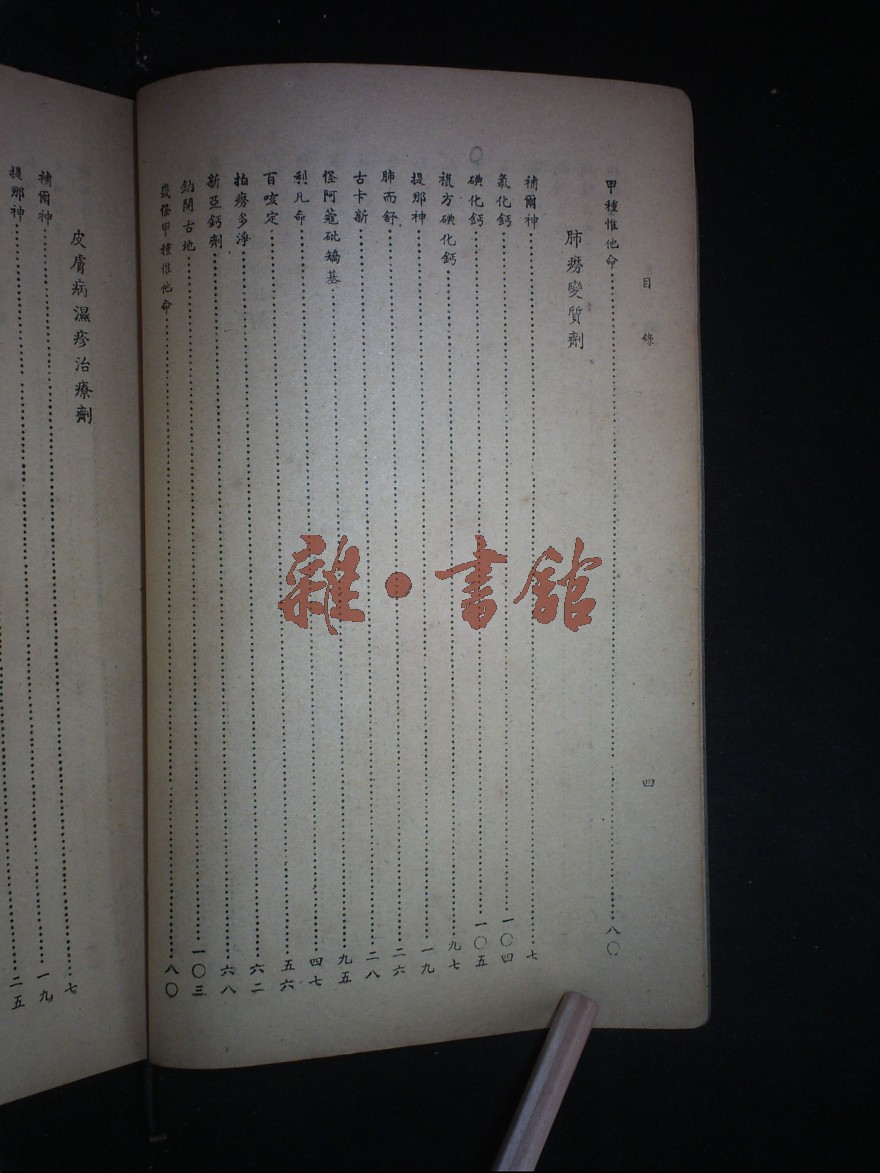 目錄 四
甲種惟他命……八〇
肺癆變質劑
補爾神……七
氯化鈣……一〇四
碘化鈣……一〇五
複方碘化鈣……九七
提那神……一九
肺而舒……二六
古卡新……二八
怪阿蔻砒矯基……九五
利凡命……四七
百咳定……五六
拍癆多淨……六二
新亞鈣劑……六八
鈉開古地……一〇三
甲種惟他命……八〇
皮膚病濕疹治療劑
補爾神……七
提那神……一九
……二五
雜·書館